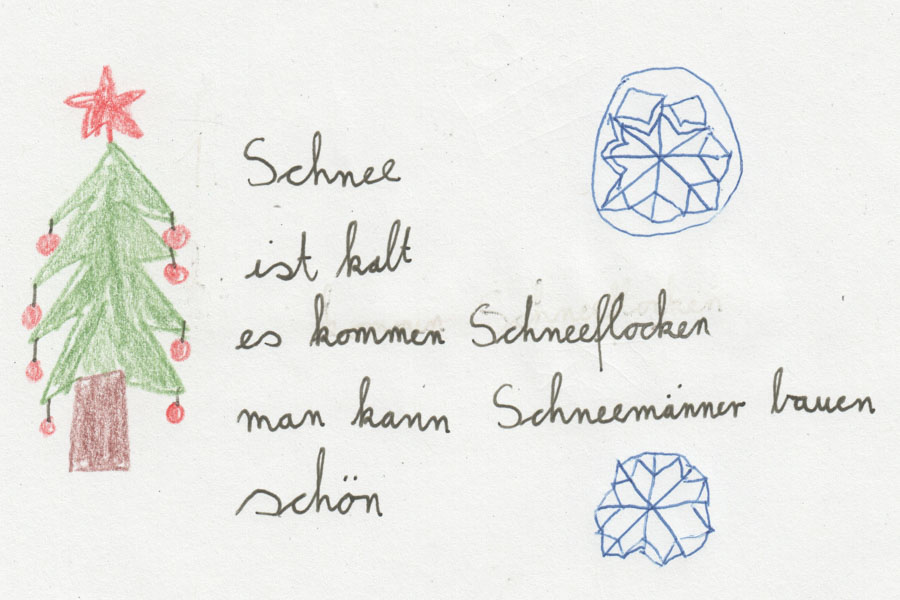 Schnee
ist kalt
es kommen Schneeflocken
man kann Schneemänner bauen
schön